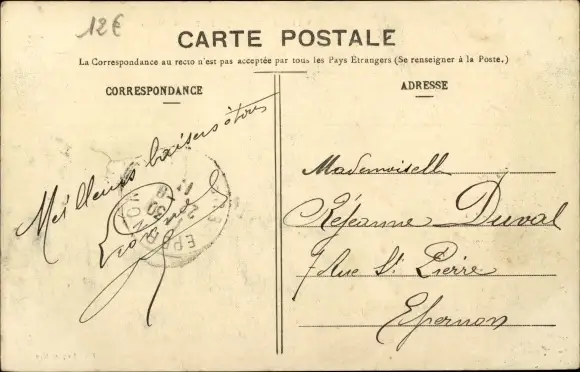 12€
CARTE POSTALE
La Correspondance au recto n'est pas acceptée par tous les Pays Etrangers (Se renseigner à la Poste.)
CORRESPONDANCE
Meilleurs baisers à tous
EPERNON
ADRESSE
Mademoiselle
Réjeanne Duval
7 Rue St Pierre
Epernon